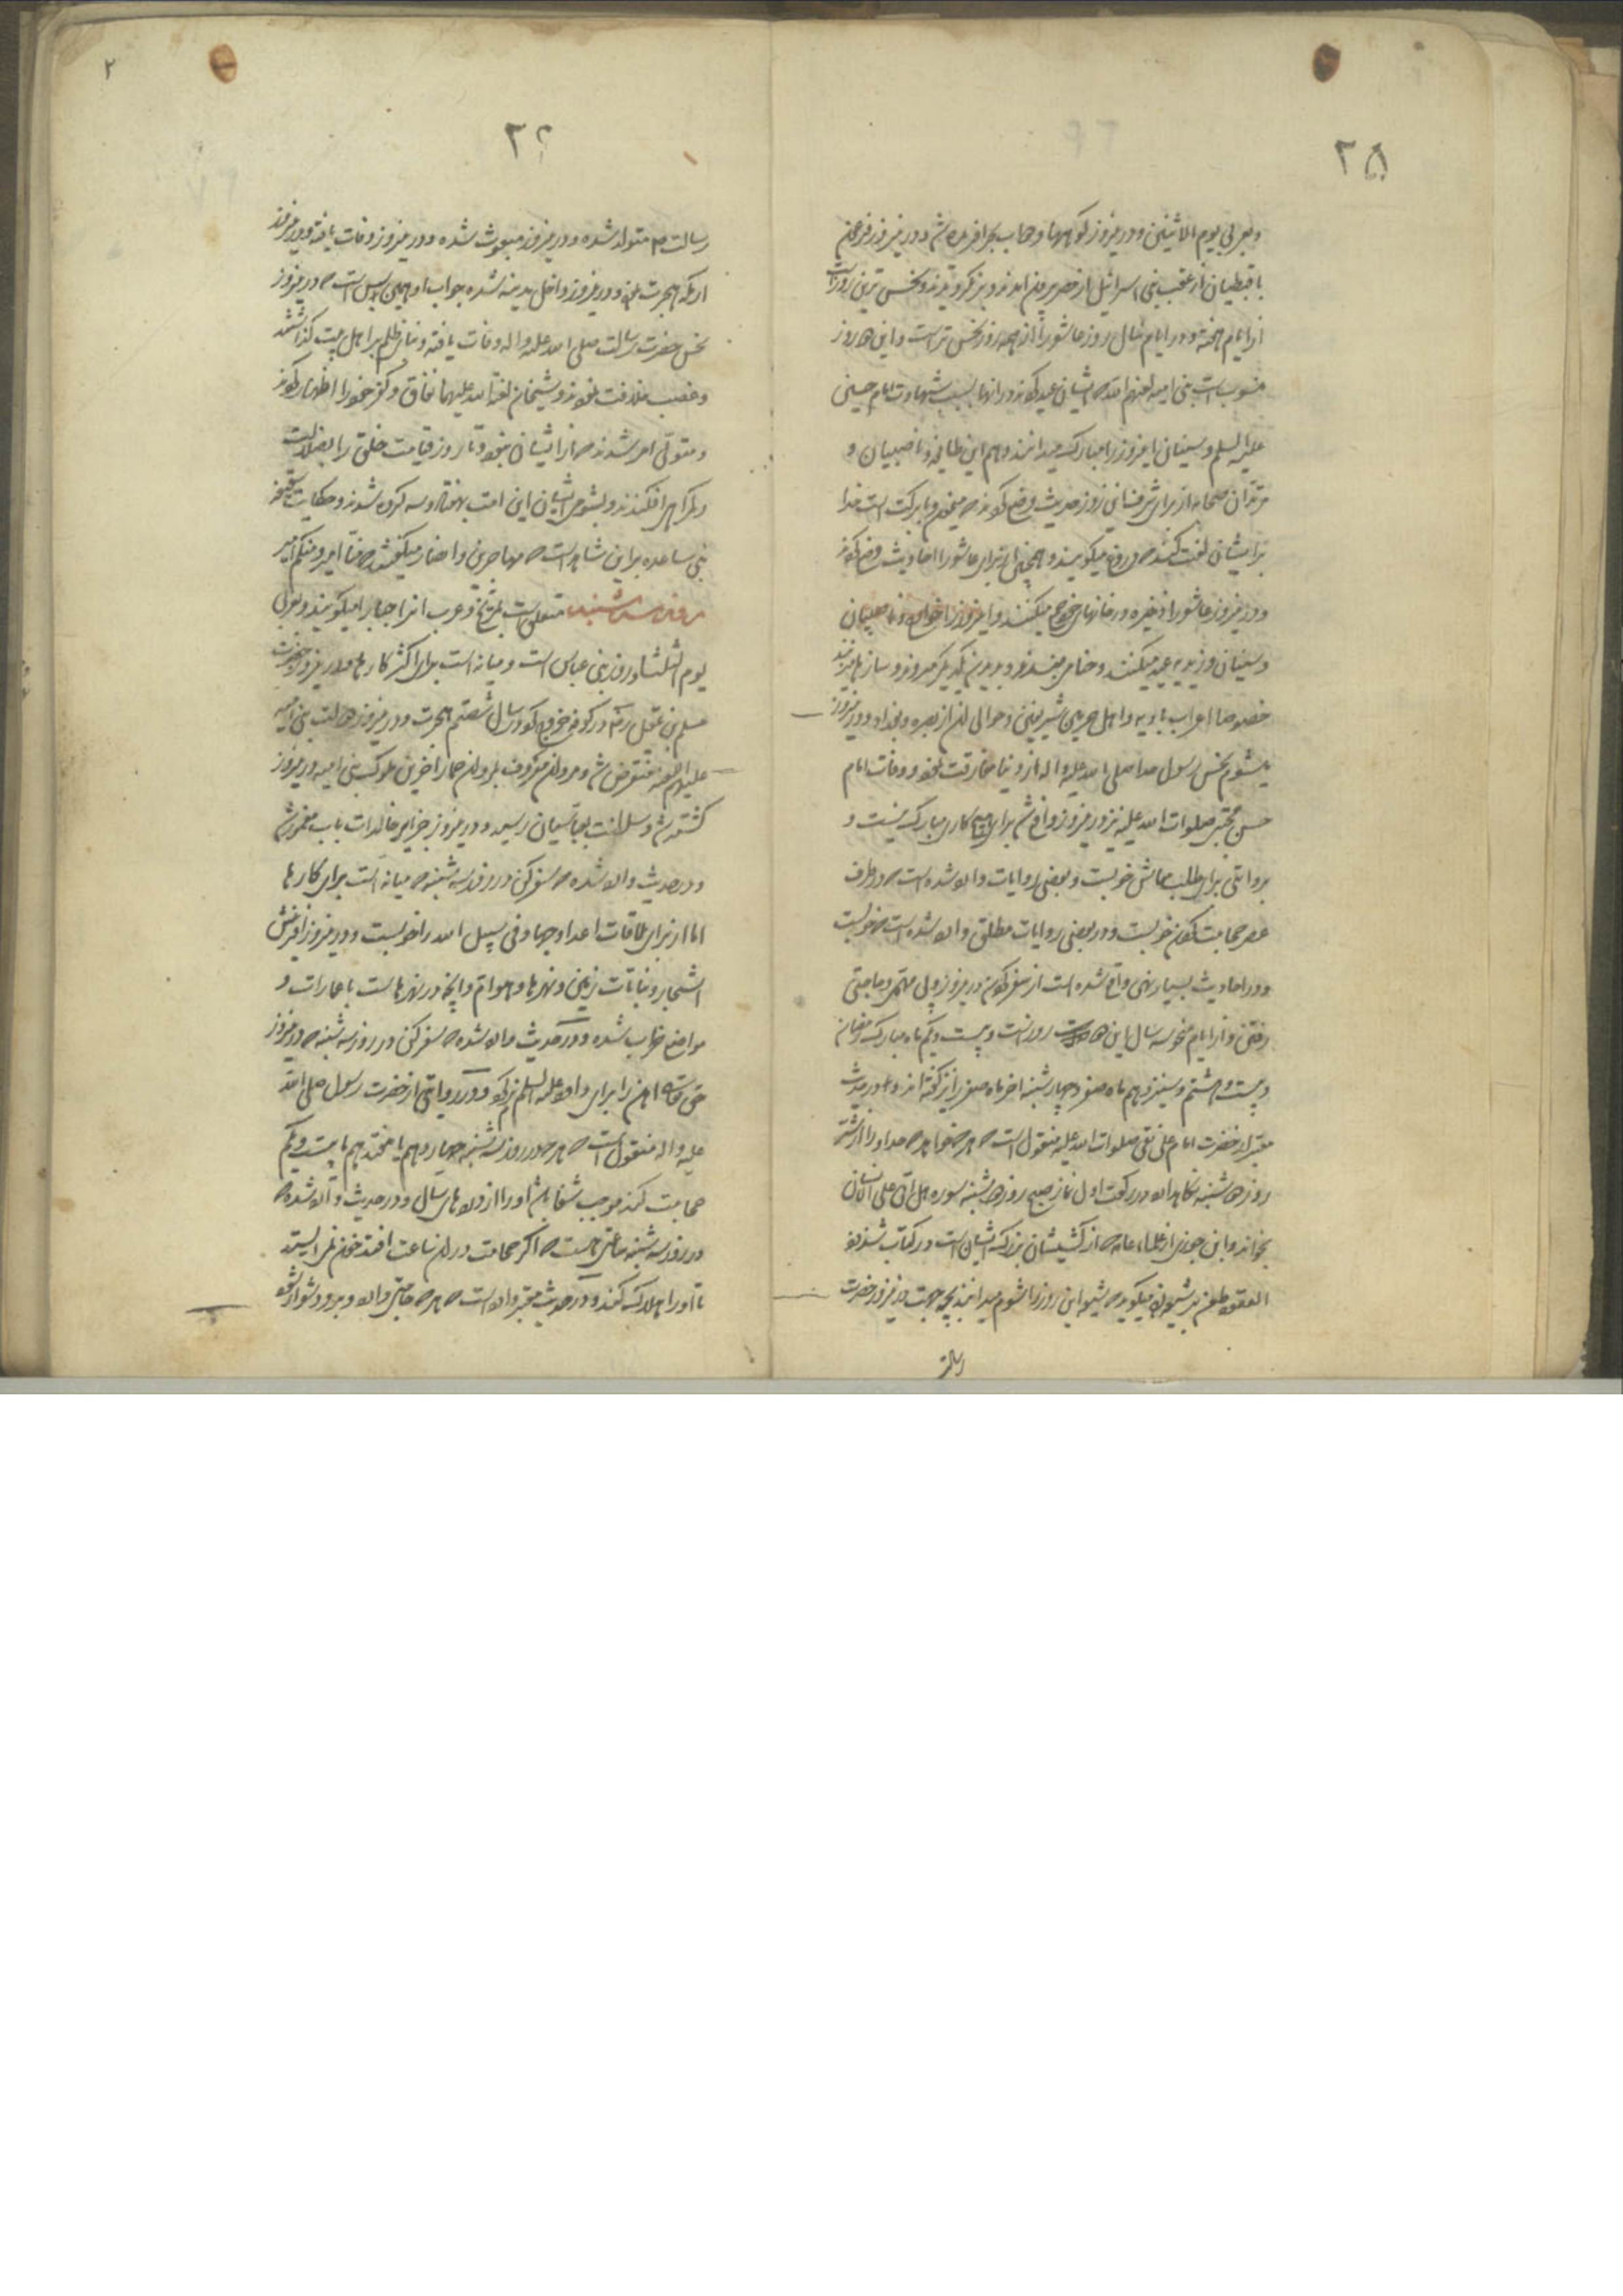 ۲۵
وبعربی یوم الاثنین ودرینروز کوهها و سحاب بحر افریده شد ودرینروز فرعون
با قبطیان از عقب بنی اسرائیل از مصر بیرون امدند و غرق کردیدند ونحس ترین روزهاست
از ایام هفته ودر ایام سال روز عاشورا از همه روز نحس تر است واین دو روز
منسوبست ببنی امیه لعنهم الله که ایشان عید کردند در انها بسبب شهادت امام حسین
علیه السلم وسنیان اینروز را مبارک میدانند وهم این طایفه وناصبیان و
مرتدان صحابه از برای شرف این روز حدیث وضع کردند که میمون وبا برکت است خدا
برایشان لعنت کند که دروغ میکویند وهمچنین از برای عاشورا احادیث وضع کردند
ودر ینروز عاشورا ذخیره در خانهای خود جمع میکنند واینروز را خوارج وناصبیان
وسنیان وزیدیه عید میکنند وحنا می بندند وبدیدن یکدیکر میروند وسازها میزنند
خصوصا اعراب بادیه واهل حرمین شریفین وحوالی ان از بصره وبغداد ودرینروز
میشوم نحس رسول خدا صلی الله علیه واله از دنیا مفارقت نمود ووفات امام
حسن مجتبی صلوات الله علیه نیز درینروز واقع شد برای هیچ کاری مبارک نیست و
بروایتی برای طلب معاش خوبست وبعضی روایات وارد شده است که در طرف
عصر حجامت کردن خوبست ودر بعضی روایات مطلق وارد شده است که خوبست
ودر احادیث بسیار نهی واقع شده است از سفر کردن درینروز وپی مهمی وحاجتی
رفتن واز ایام نحوسه سال این دو روز است وبیست ویکم ماه مبارک رمضان
وبیست وهشتم وسیزدهم ماه صفر وچهارشنبه اخر ماه صفر را نیز کفته اند ودر حدیث
معتبر از حضرت امام علی نقی صلوات الله علیه منقول است که هر که خواهد که خدا او را از شر
روز دوشنبه نکاهدارد در رکعت اول نماز صبح روز دوشنبه سوره هل اتی علی الانسان
بخواند وابن جوزی از علماء عامه که از کشیشان بزرک ایشان است در کتاب شذور
العقود طعن بر شیعیان میکوید که شیعه این روز را شوم میدانند بچه جهت درینروز حضرت
رسالت
۲۶
رسالت م متولد شده ودرینروز مبعوث شده ودرینروز وفات یافته ودرینروز
از مکه هجرت نموده ودرینروز داخل مدینه شده جواب او همین بس است که درینروز
نحس حضرت رسالت صلی الله علیه واله وفات یافته وبنای ظلم بر اهل بیت کذاشتند
وغصب خلافت نمودند وشیخان لعنة الله علیهما نفاق وکفر خود را اظهار کردند
ومتولی امر شدند که از ایشان نبود وتا روز قیامت خلق را بضلالت
وکمراهی افکندند وبشومی ایشان این امت بهفتاد وسه کروه شدند وحکایت سقیفه
بنی ساعده براین شاهد است که مهاجرین وانصار میکفتند که منا امیر ومنکم امیر
روز سه شنبه متعلق است بمریخ وعرب انرا جبار میکویند وبعربی
یوم الثلثا وروز بنی عباس است ومیانه است برای اکثر کارها ودرینروز حضرت
مسلم بن عقیل رض در کوفه خروج کرد در سال شصتم هجرت ودرینروز دولت بنی امیه
علیهم اللعنه منقرض شد ومروان معروف بمروان حمار اخرین ملوک بنی امیه درینروز
کشته شد وسلطنت بعباسیان رسید ودرینروز جزایر خالدات باب مغمور شد
ودر حدیث وارد شده که سفر کن در روز سه شنبه که میانه است برای کارها
اما از برای ملاقات اعدا وجهاد فی سبیل الله را خوبست ودرینروز افرینش
اشجار ونباتات زمین ونهرها وهوام وانچه در نهرهاست با عمارات و
مواضع خراب شده ودر حدیث وارد شده که سفر کن در روز سه شنبه که درینروز
حق تعالی اهن را برای داود علیه السلم نرم کرد ودر روایتی از حضرت رسول صلی الله
علیه واله منقول است که هر که در روز سه شنبه چهاردهم یا هفتدهم یا بیست ویکم
حجامت کند موجب شفا باشد او را از دردهای سال ودر حدیث وارد شده که
در روز سه شنبه ساعتی هست که اکر حجامت دران ساعت افتد خون نمی ایستد
تا او را هلاک کند ودر حدیث معتبر وارد است که هر که حاجتی دارد وبرو دشوار شود